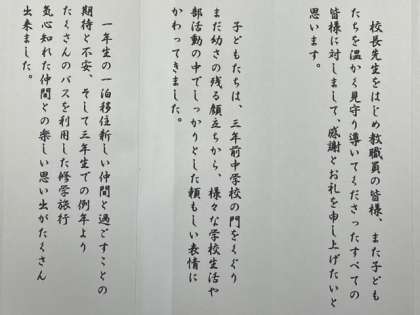 校長先生をはじめ教職員の皆様、また子ども
たちを温かく見守り導いてくださったすべての
皆様に対しまして、感謝とお礼を申し上げたいと
思います。
子どもたちは、三年前中学校の門をくぐり
まだ幼さの残る顔立ちから、様々な学校生活や
部活動の中でしっかりとした頼もしい表情に
かわってきました。
一年生の一泊移住新しい仲間と過ごすことの
期待と不安、そして三年生での例年より
たくさんのバスを利用した修学旅行
気心知れた仲間との楽しい思い出がたくさん
出来ました。